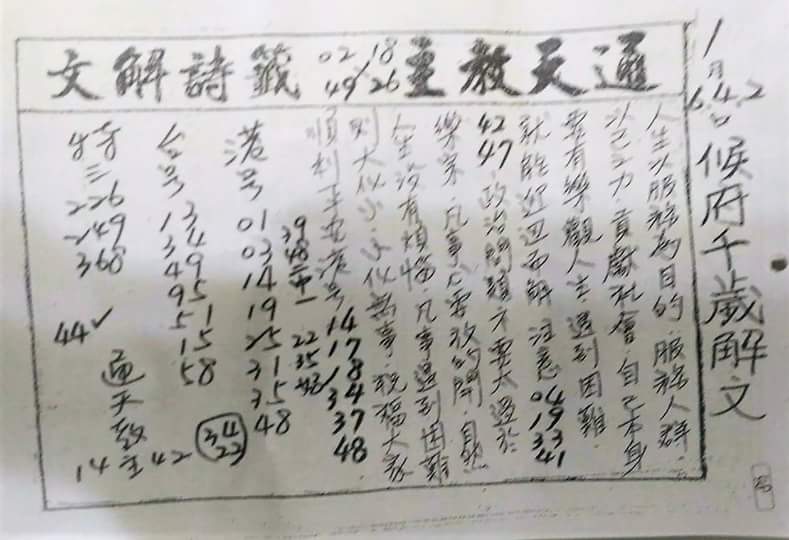 通天教主 02 18 49 26 籤詩解文
1月6.4.2日
候府千歲解文
人生以服務為目的．服務人群．
以己之力．貢獻社會．自己本身
要有樂觀人生．遇到困難．
就能迎迴而解 注意 04 19 33 41
42 47 ．政治問題不要太過於
樂眾．凡事只要放的開．自然
人生沒有煩惱．凡事遇到困難
則大化小．小化無事．祝福大家
順利平安港号 14 17 18 34 37 48
39 48 二 22 35 48
港号 01 03 14 19 25 31 35 48
台号 13 34 49 95 51 15 58
34 23
特三 226 249 368
44✓
通天教主
14 42